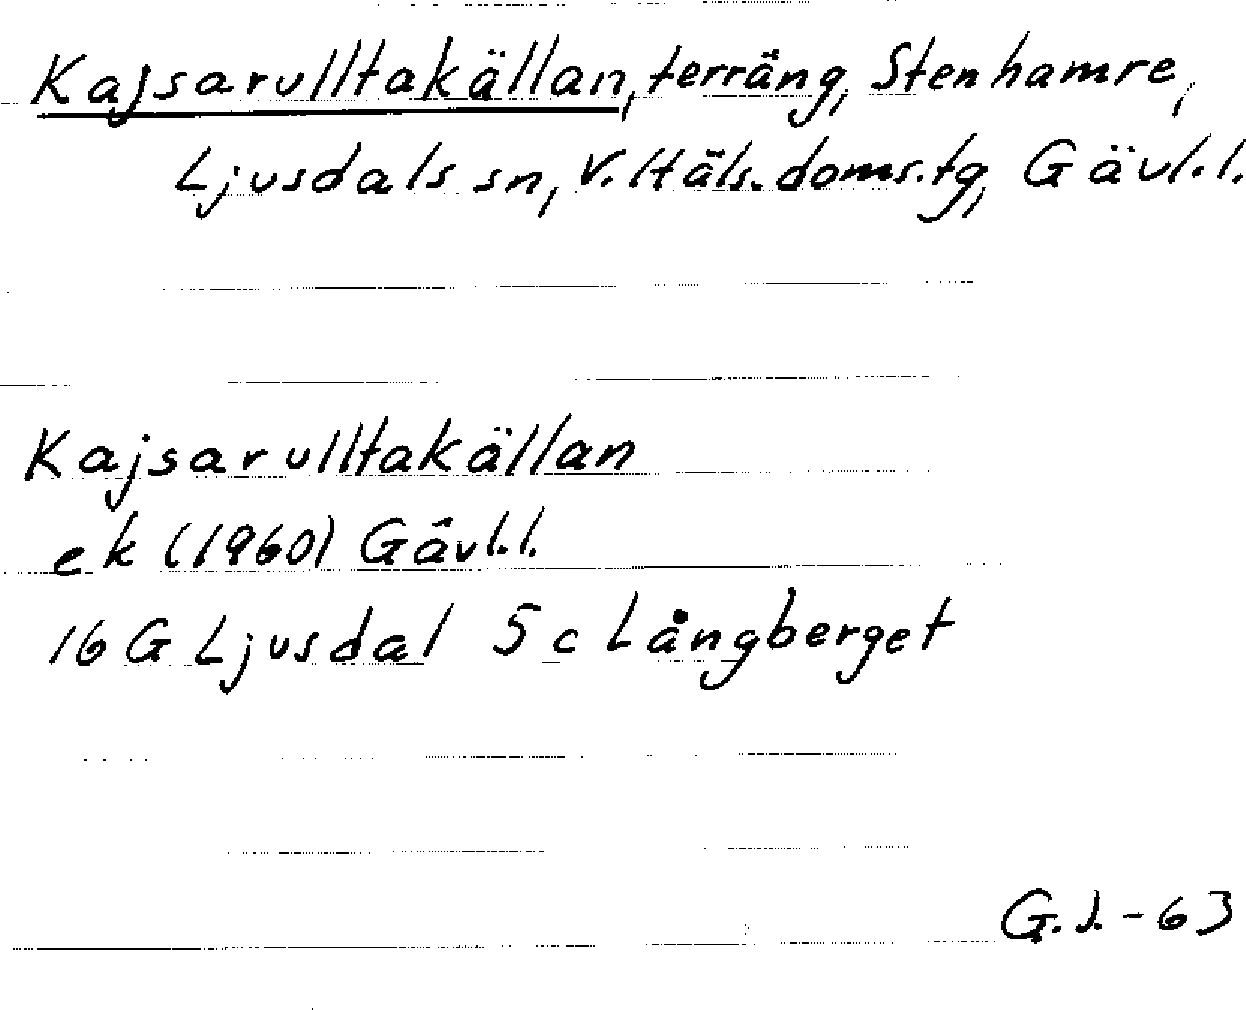 Kajsarulltakällan, terräng, Stenhamre,
Ljusdals sn, V. Häls. doms.tg, Gävl.l.
Kajsarulltakällan
ek (1960) Gävl.l.
16 G Ljusdal 5 c Långberget
G.J.-63